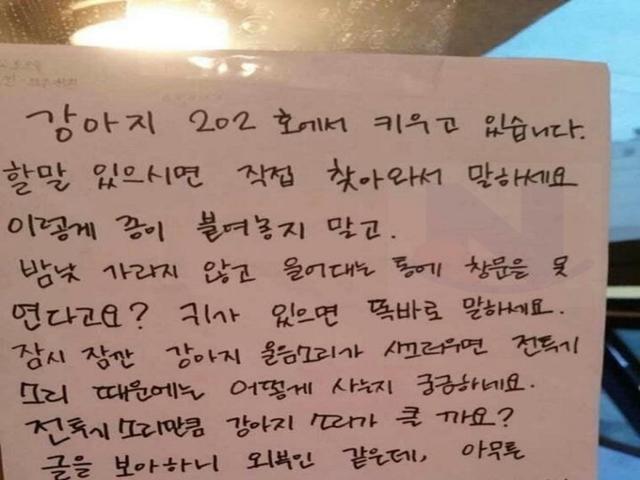 강아지 202 호에서 키우고 있습니다.
할말 있으시면 직접 찾아와서 말하세요
이렇게 종이 붙여놓지 말고.
밤낮 가라지 않고 울어대는 통에 창문을 못
연다고요? 귀가 있으면 똑바로 말하세요.
잠시 잠깐 강아지 울음소리가 시끄러우면 전투기
소리 때문에는 어떻게 사는지 궁금하네요.
전투기 소리만큼 강아지 소리가 클 까요?
글을 보아하니 외부인 같은데, 아무튼